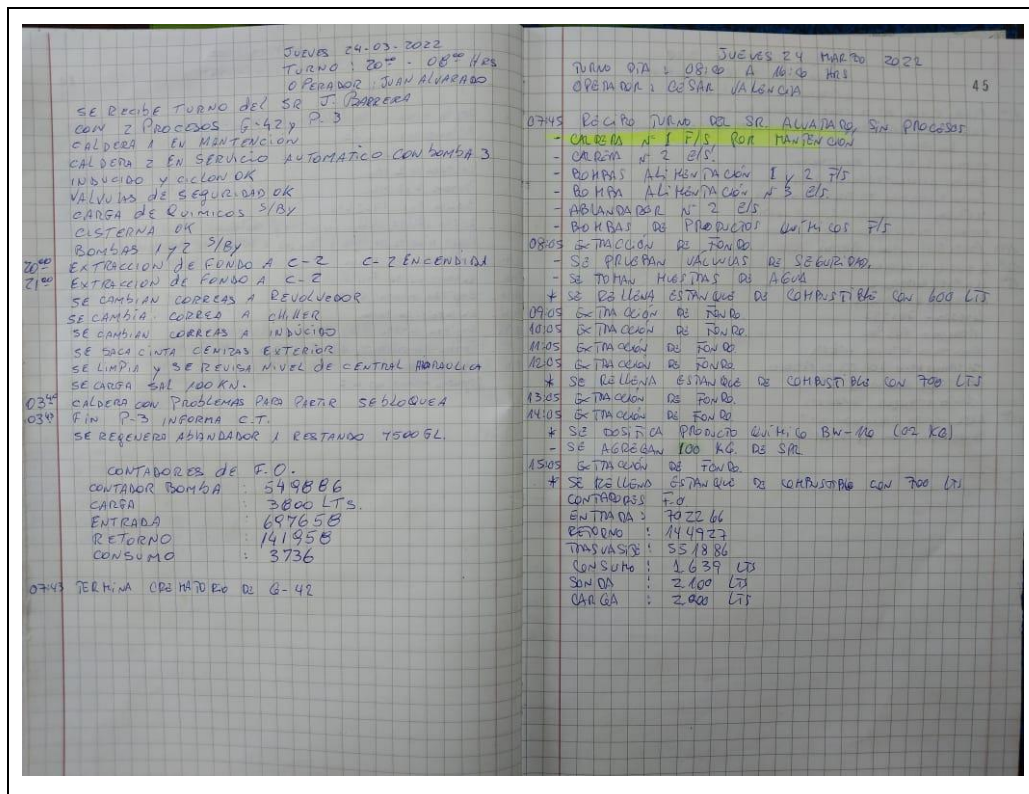 JUEVES 24-03-2022
TURNO : 20:00 - 08:00 HRS
OPERADOR : JUAN ALVARADO
SE RECIBE TURNO del SR J. BARRERA
CON 2 PROCESOS G-42 y P-3
CALDERA 1 EN MANTENCION
CALDERA 2 EN SERVICIO AUTOMATICO CON bOMBA 3
INDUCIDO y CICLON OK
VALVULAS de SEGURIDAD OK
CARGA de QUIMICOS S/By
CISTERNA OK
BOMBAS 1 y 2 S/By
20:00 EXTRACCION de FONDO A C-2 C-2 ENCENDIDA
21:00 EXTRACCION de FONDO A C-2
SE CAMBIAN CORREAS A REVOLVEDOR
SE CAMBIA CORREA A CHILLER
SE CAMBIAN CORREAS A INDUCIDO
SE SACA CINTA CENIZAS EXTERIOR
SE LIMPIA y SE REVISA NIVEL de CENTRAL HIDRAULICA
SE CARGA SAL 100 KN.
CALDERA CON PROBLEMAS PARA PARTIR SE bLOQUEA
FIN P-3 INFORMA C.T.
SE REGENERA AbLANDADOR 1 RESTANDO 7500 GL.
CONTADORES de F.O.
CONTADOR BOMBA : 549886
CARGA : 3800 LTS.
ENTRADA : 697658
RETORNO : 141958
CONSUMO : 3736
07:43 TERMINA CREMATORIO DE G-42
JUEVES 24 MARZO 2022
TURNO DIA : 08:00 A 16:00 HRS
OPERADOR : CESAR VALENCIA
45
07:45 RECIBO TURNO DEL SR ALVARADO, SIN PROCESOS
- CALDERA N° 1 F/S POR MANTENCION
- CALDERA N° 2 E/S.
- BOMBAS ALIMENTACIÓN 1 y 2 F/S
- BOMBA ALIMENTACIÓN N° 3 E/S.
- ABLANDADOR N° 2 E/S
- BOMBAS DE PRODUCTOS QUÍMICOS F/S
08:05 EXTRACCIÓN DE FONDO
- SE PRUEBAN VÁLVULAS DE SEGURIDAD.
- SE TOMAN MUESTRAS DE AGUA
* SE RELLENA ESTANQUE DE COMBUSTIBLE CON 600 LTS
09:05 EXTRACCIÓN DE FONDO.
10:05 EXTRACCIÓN DE FONDO.
11:05 EXTRACCIÓN DE FONDO.
12:05 EXTRACCIÓN DE FONDO.
* SE RELLENA ESTANQUE DE COMBUSTIBLE CON 700 LTS
13:05 EXTRACCIÓN DE FONDO.
14:05 EXTRACCIÓN DE FONDO.
* SE DOSIFICA PRODUCTO QUÍMICO BW-110 (02 KG)
- SE AGREGAN 100 KG. DE SAL
15:05 EXTRACCIÓN DE FONDO.
* SE RELLENA ESTANQUE DE COMBUSTIBLE CON 700 LTS
CONTADORES F.O
ENTRADA : 702266
RETORNO : 144927
TRASVASIJE : 551886
CONSUMO : 1.639 LTS
SONDA : 2.100 LTS
CARGA : 2.000 LTS